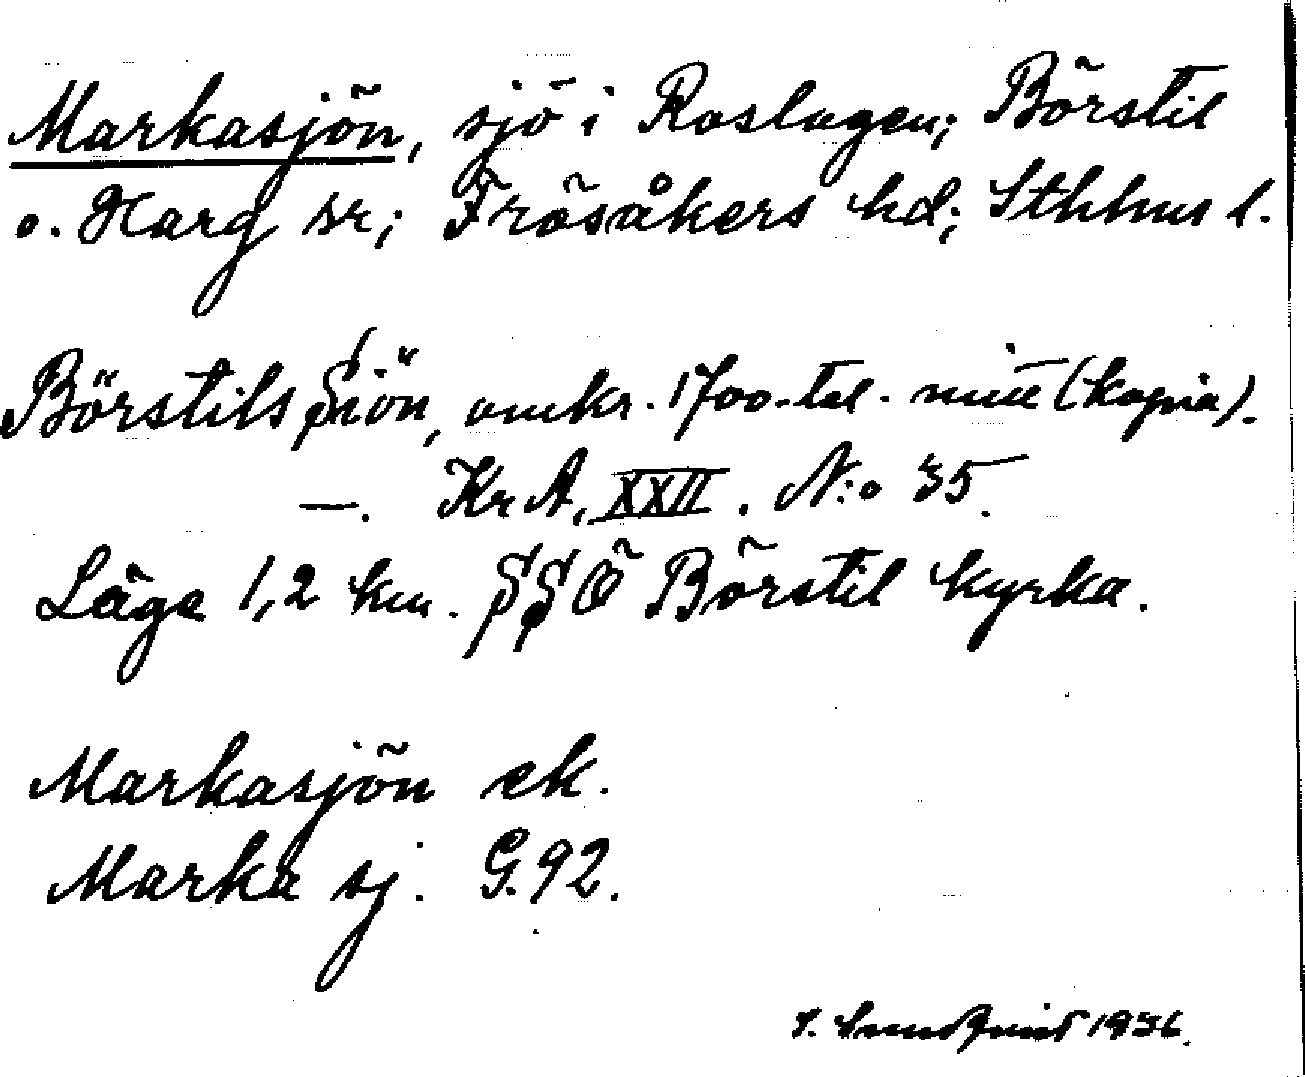 Markasjön, sjö i Roslagen; Börstil
o. Harg sr; Frösåkers hd; Sthlms l.
Börstils Siön, omkr. 1700-tal. mitt (kopia).
—. Kr A, XXII. N:o 35.
Läge 1,2 km. SSÖ Börstil kyrka.
Markasjön ek.
Marka sj. G. 92.
Sundqvist 1936.